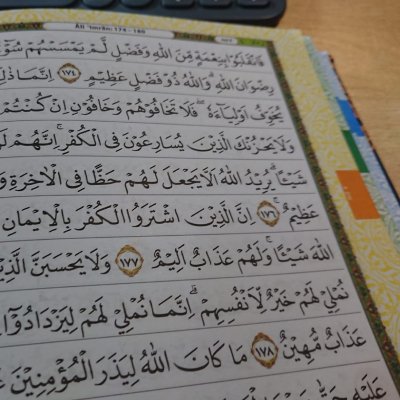 Āli 'Imrān: 174 - 180
فَانْقَلَبُوْا بِنِعْمَةٍ مِّنَ اللّٰهِ وَفَضْلٍ لَّمْ يَمْسَسْهُمْ سُوْۤءٌ
رِضْوَانَ اللّٰهِ ۗ وَاللّٰهُ ذُوْ فَضْلٍ عَظِيْمٍ ١٧٤ اِنَّمَا ذٰلِ
يُخَوِّفُ اَوْلِيَاۤءَهٗ ۖ فَلَا تَخَافُوْهُمْ وَخَافُوْنِ اِنْ كُنْتُمْ
وَلَا يَحْزُنْكَ الَّذِيْنَ يُسَارِعُوْنَ فِى الْكُفْرِ ۚ اِنَّهُمْ لَ
شَيْـًٔا ۗ يُرِيْدُ اللّٰهُ اَلَّا يَجْعَلَ لَهُمْ حَظًّا فِى الْاٰخِرَةِ وَ
عَظِيْمٌ ۚ ١٧٦ اِنَّ الَّذِيْنَ اشْتَرَوُا الْكُفْرَ بِالْاِيْمَانِ
اللّٰهَ شَيْـًٔا ۚ وَلَهُمْ عَذَابٌ اَلِيْمٌ ١٧٧ وَلَا يَحْسَبَنَّ الَّذِيْ
نُمْلِيْ لَهُمْ خَيْرٌ لِّاَنْفُسِهِمْ ۗ اِنَّمَا نُمْلِيْ لَهُمْ لِيَزْدَادُوْٓا
عَذَابٌ مُّهِيْنٌ ١٧٨ مَا كَانَ اللّٰهُ لِيَذَرَ الْمُؤْمِنِيْنَ
عَلَيْهِ حَتّٰى